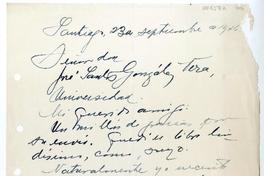 Santiago, 23 a septiembre
Señor don
José Santos González Vera,
Universidad.
Mi querido amigo:
Un millón de gracias por
su envío. libro
como, suyo.
Naturalmente ya